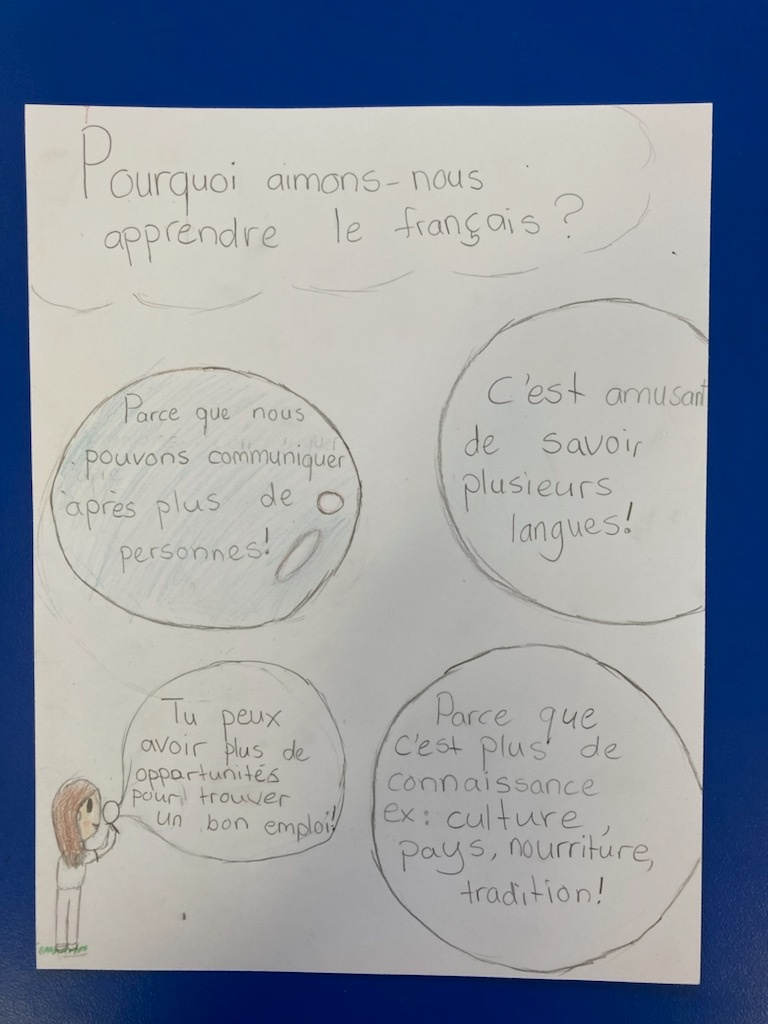 Pourquoi aimons-nous
apprendre le français?
Parce que nous
pouvons communiquer
après plus de
personnes!
C'est amusant
de savoir
plusieurs
langues!
Tu peux
avoir plus de
opportunités
pour trouver
un bon emploi!
Parce que
c'est plus de
connaissance
ex: culture,
pays, nourriture,
tradition!